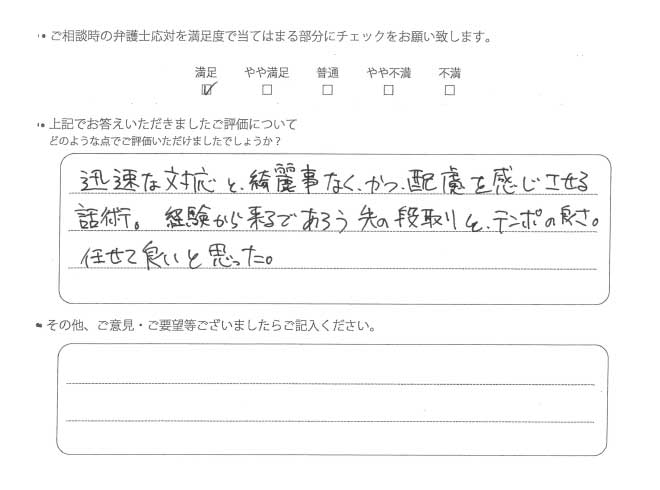 ・ご相談時の弁護士応対を満足度で当てはまる部分にチェックをお願い致します。
満足 やや満足 普通 やや不満 不満
☑ □ □ □ □
・上記でお答えいただきましたご評価について
どのような点でご評価いただけましたでしょうか？
迅速な対応と、綺麗事なく、かつ、配慮を感じさせる
話術。経験から来るであろう先の段取りと、テンポの良さ。
任せて良いと思った。
・その他、ご意見・ご要望等ございましたらご記入ください。